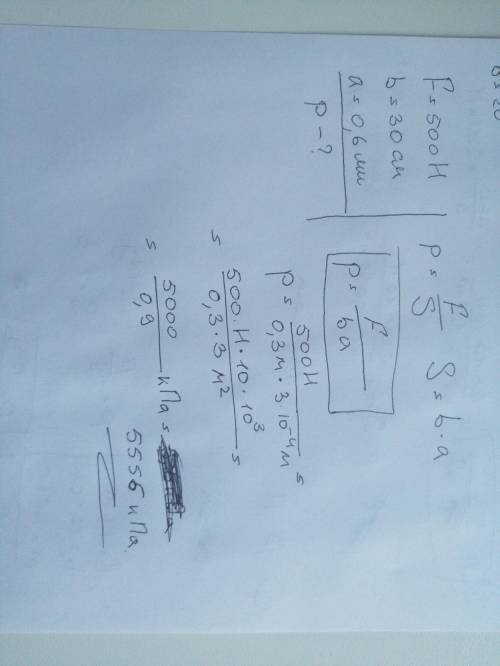 F = 500 Н
b = 30 см
a = 0,6 мм
p - ?
p = F/S S = b·a
p = F/ba
p = 500Н/0,3м·3·10⁻⁴м =
= 500·Н·10·10³/0,3·3 м² =
= 5000/0,9 кПа =
5556 кПа